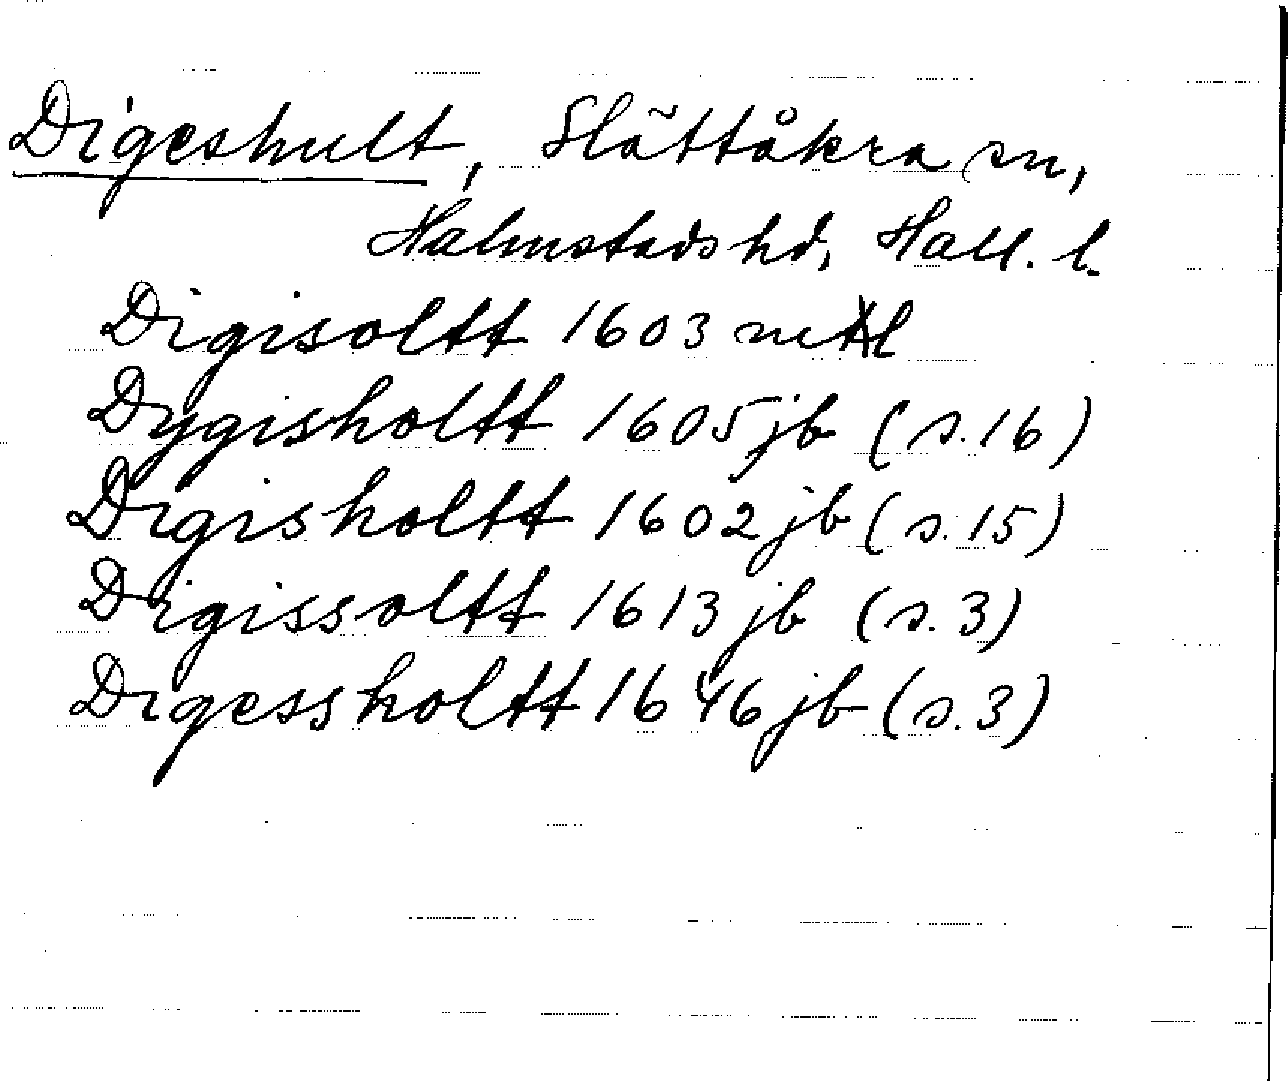 Digeshult, Slättåkra sn,
Halmstads hd, Hall. l.
Digisoltt 1603 mtl
Dygisholtt 1605 jb (s. 16)
Digisholtt 1602 jb (s. 15)
Digissoltt 1613 jb (s. 3)
Digessholtt 1646 jb (s. 3)